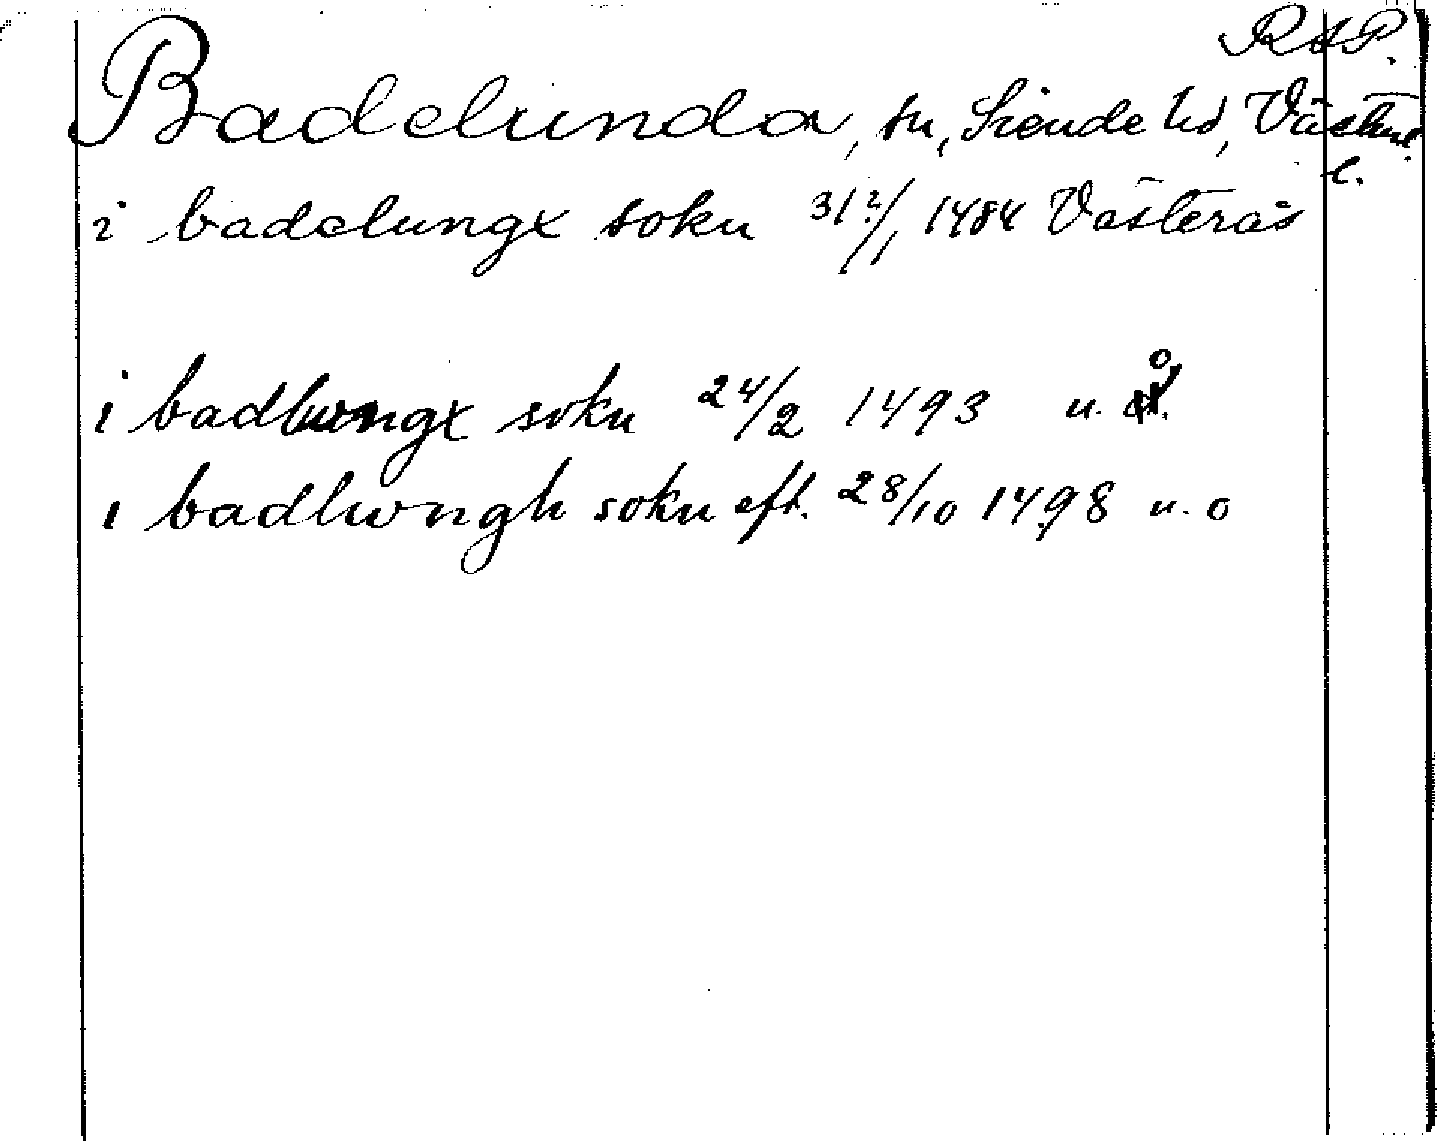 RAP.
Badelunda, sn, Siende hd, Västml.
l.
i badelungx sokn 31?/1 1484 Västerås
i badlwngx sokn 24/2 1493 u. o.
i badlwngh sokn eft. 28/10 1498 u. o